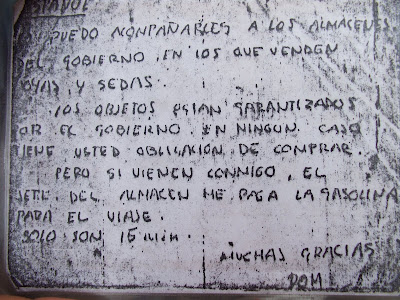 SPAÑOL
PUEDO AONPAÑARLES A LOS ALMACENES
DEL GOBIERNO, EN LOS QUE VENDEN
OYAS Y SEDAS.
LOS OBJETOS ESTAN GARANTIZADOS
OR EL GOBIERNO. EN NINGUN CASO
IENE USTED OBLIGACION DE COMPRAR.
PERO SI VIENEN CONMIGO, EL
DEL ALMACEN ME PAGA LA GASOLINA
PARA EL VIAJE.
SOLO SON 15 min.
MUCHAS GRACIAS